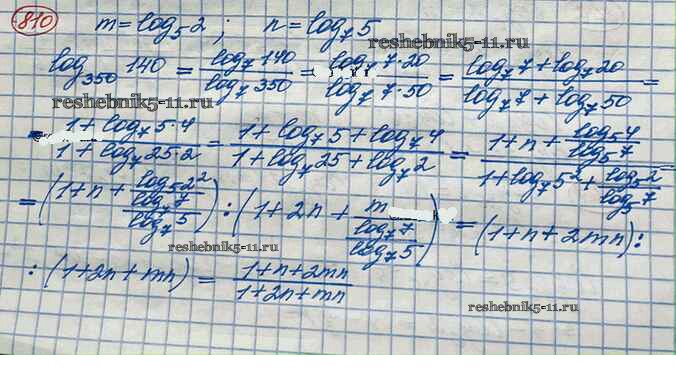 810 m = log₅2 ; n = log₇5
reshebnik5-11.ru
log₃₅₀ 140 = log₇140 / log₇350 = log₇ 7·20 / log₇ 7·50 = (log₇7 + log₇20) / (log₇7 + log₇50) =
reshebnik5-11.ru
= (1 + log₇5·4) / (1 + log₇25·2) = (1 + log₇5 + log₇4) / (1 + log₇25 + log₇2) = (1 + n + log₅4 / log₅7) / (1 + log₇5² + log₅2 / log₅7)
= (1 + n + log₅2² / (log₇7 / log₇5)) : (1 + 2n + m / (log₇7 / log₇5)) = (1 + n + 2mn) :
reshebnik5-11.ru
: (1 + 2n + mn) = (1 + n + 2mn) / (1 + 2n + mn)
reshebnik5-11.ru